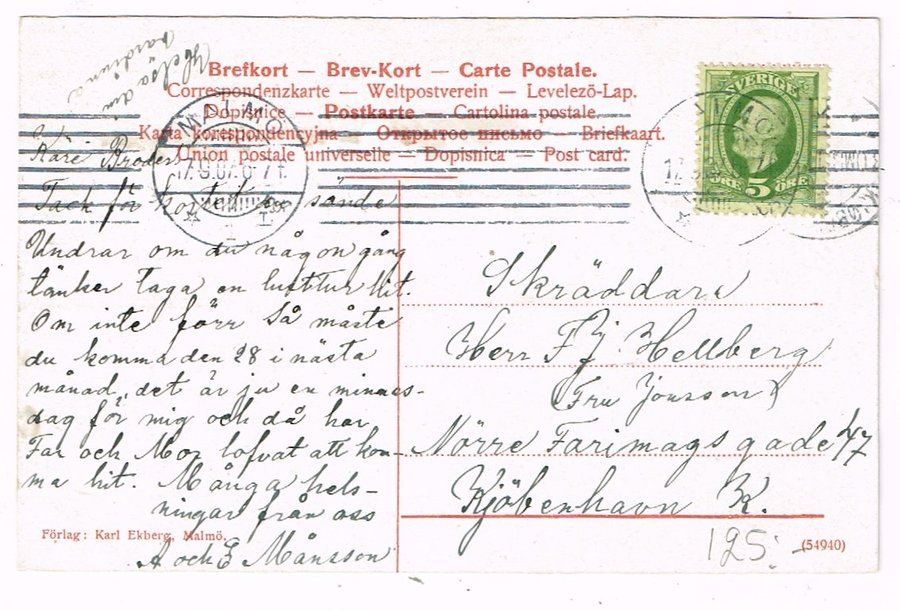 Helsa din
värdinna
Brefkort — Brev-Kort — Carte Postale.
Correspondenzkarte — Weltpostverein — Levelező-Lap.
Dopisnice — Postkarte — Cartolina postale
Karta korespondencyjna — Открытое письмо — Briefkaart.
Union postale universelle — Dopisnica — Post card.
SVERIGE
5
ÖRE ÖRE
MALMÖ
17.9.07. 6-7 F.
Käre Broder
Tack för kortet du sände
Undrar om du någon gång
tänker taga en lusttur hit.
Om inte förr så måste
du komma den 28 i nästa
månad, det är ju en minnes-
dag för mig och då har
Far och Mor lofvat att kom-
ma hit. Många hels-
ningar från oss
A och E Månsson
Skräddare
Herr F J. Hellberg
(Fru Jönsson)
Nörre Farimagsgade 47
Kjöbenhavn K.
Förlag: Karl Ekberg, Malmö.
125
(54940)